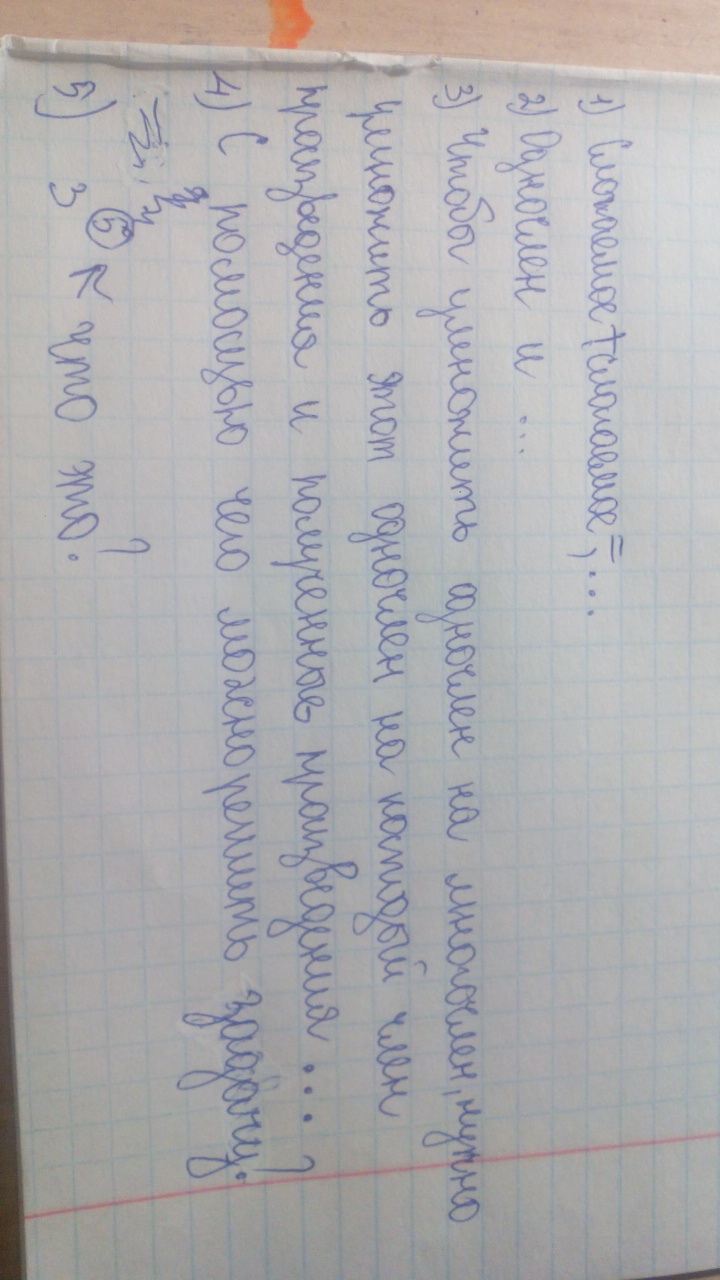 1) Слогаемое + слогаемое = , ...
2) Одночлен и ...
3) Чтобы умножить одночлен на многочлен, нужно
умножить этот одночлен на каждый член
произведения и полученные произведения ... ?
4) С помощью чего можно решить задачу.
5) 3 5 ← что это. ?